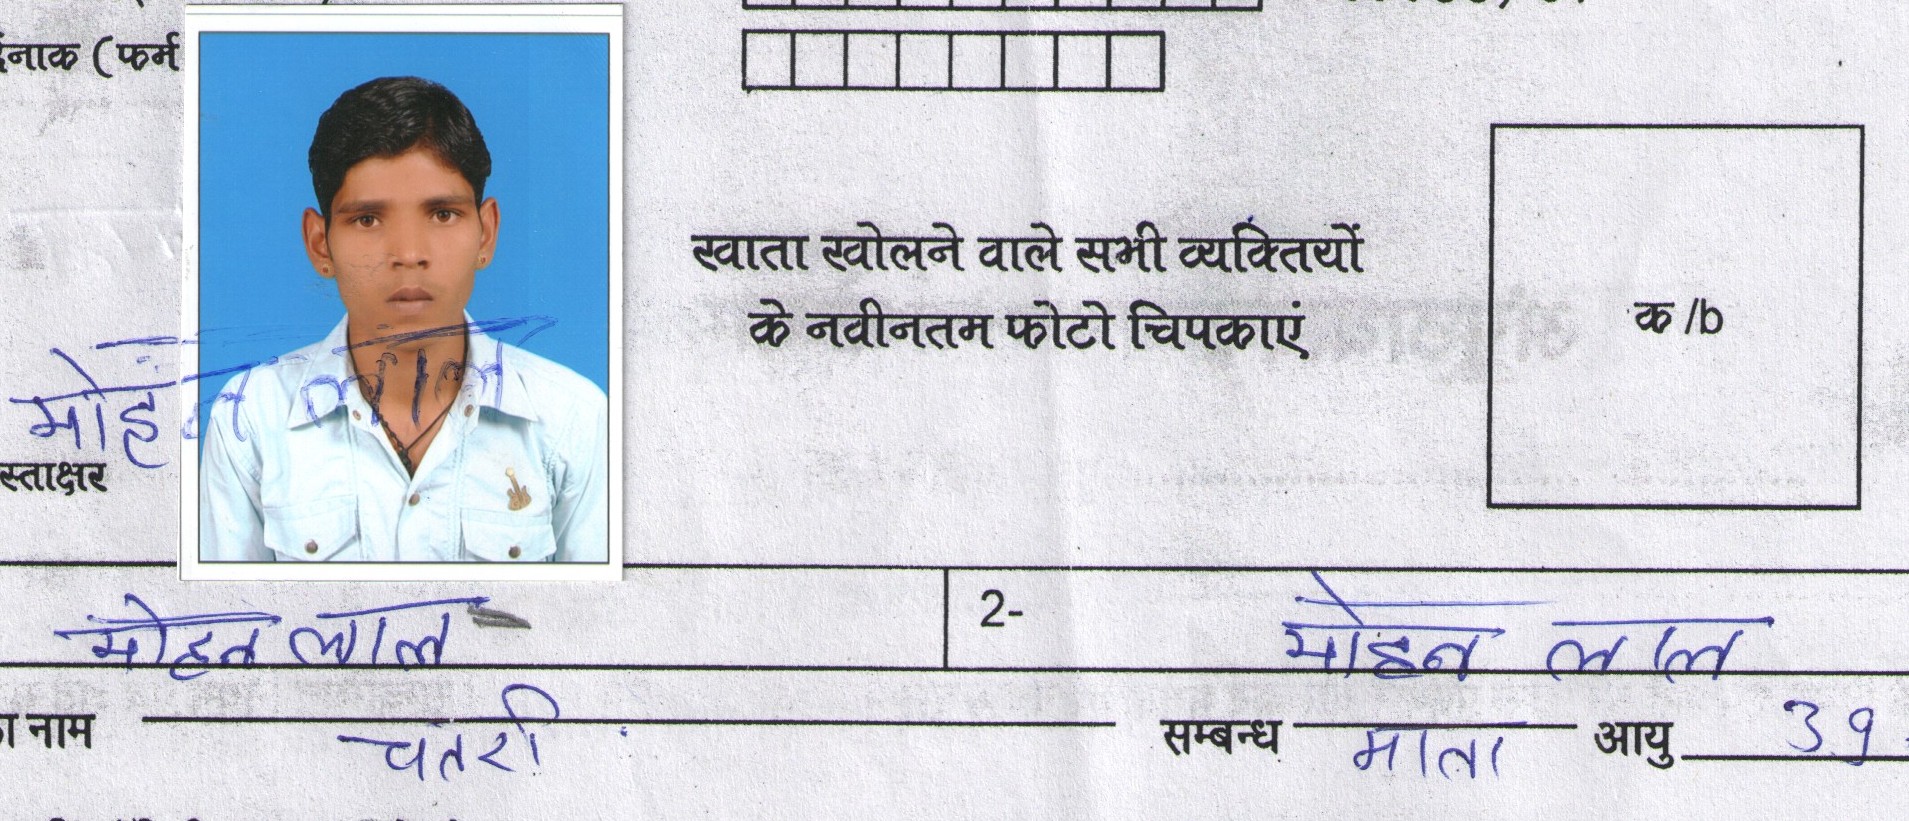 दिनाक ( फर्म
खाता खोलने वाले सभी व्यक्तियों
के नवीनतम फोटो चिपकाएं
क /b
मोहन लाल
स्ताक्षर
मोहन लाल
2-
मोहन लाल
ा नाम चतरी सम्बन्ध माता आयु 39